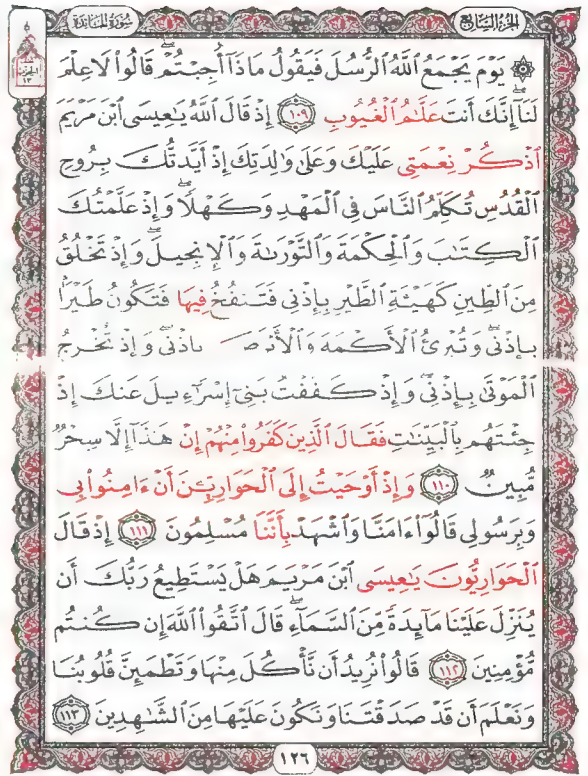 الجزء السابع
سورة المائدة
۞ يَوْمَ يَجْمَعُ ٱللَّهُ ٱلرُّسُلَ فَيَقُولُ مَاذَآ أُجِبْتُمْ ۖ قَالُوا۟ لَا عِلْمَ
لَنَآ إِنَّكَ أَنتَ عَلَّٰمُ ٱلْغُيُوبِ ١٠٩ إِذْ قَالَ ٱللَّهُ يَٰعِيسَى ٱبْنَ مَرْيَمَ
ٱذْكُرْ نِعْمَتِى عَلَيْكَ وَعَلَىٰ وَٰلِدَتِكَ إِذْ أَيَّدتُّكَ بِرُوحِ
ٱلْقُدُسِ تُكَلِّمُ ٱلنَّاسَ فِى ٱلْمَهْدِ وَكَهْلًا ۖ وَإِذْ عَلَّمْتُكَ
ٱلْكِتَٰبَ وَٱلْحِكْمَةَ وَٱلتَّوْرَىٰةَ وَٱلْإِنجِيلَ ۖ وَإِذْ تَخْلُقُ
مِنَ ٱلطِّينِ كَهَيْـَٔةِ ٱلطَّيْرِ بِإِذْنِى فَتَنفُخُ فِيهَا فَتَكُونُ طَيْرًۢا
بِإِذْنِى ۖ وَتُبْرِئُ ٱلْأَكْمَهَ وَٱلْأَبْرَصَ بِإِذْنِى ۖ وَإِذْ تُخْرِجُ
ٱلْمَوْتَىٰ بِإِذْنِى ۖ وَإِذْ كَفَفْتُ بَنِىٓ إِسْرَٰٓءِيلَ عَنكَ إِذْ
جِئْتَهُم بِٱلْبَيِّنَٰتِ فَقَالَ ٱلَّذِينَ كَفَرُوا۟ مِنْهُمْ إِنْ هَٰذَآ إِلَّا سِحْرٌ
مُّبِينٌ ١١٠ وَإِذْ أَوْحَيْتُ إِلَى ٱلْحَوَارِيِّـۧنَ أَنْ ءَامِنُوا۟ بِى
وَبِرَسُولِى قَالُوٓا۟ ءَامَنَّا وَٱشْهَدْ بِأَنَّنَا مُسْلِمُونَ ١١١ إِذْ قَالَ
ٱلْحَوَارِيُّونَ يَٰعِيسَى ٱبْنَ مَرْيَمَ هَلْ يَسْتَطِيعُ رَبُّكَ أَن
يُنَزِّلَ عَلَيْنَا مَآئِدَةً مِّنَ ٱلسَّمَآءِ ۖ قَالَ ٱتَّقُوا۟ ٱللَّهَ إِن كُنتُم
مُّؤْمِنِينَ ١١٢ قَالُوا۟ نُرِيدُ أَن نَّأْكُلَ مِنْهَا وَتَطْمَئِنَّ قُلُوبُنَا
وَنَعْلَمَ أَن قَدْ صَدَقْتَنَا وَنَكُونَ عَلَيْهَا مِنَ ٱلشَّٰهِدِينَ ١١٣
١٢٦